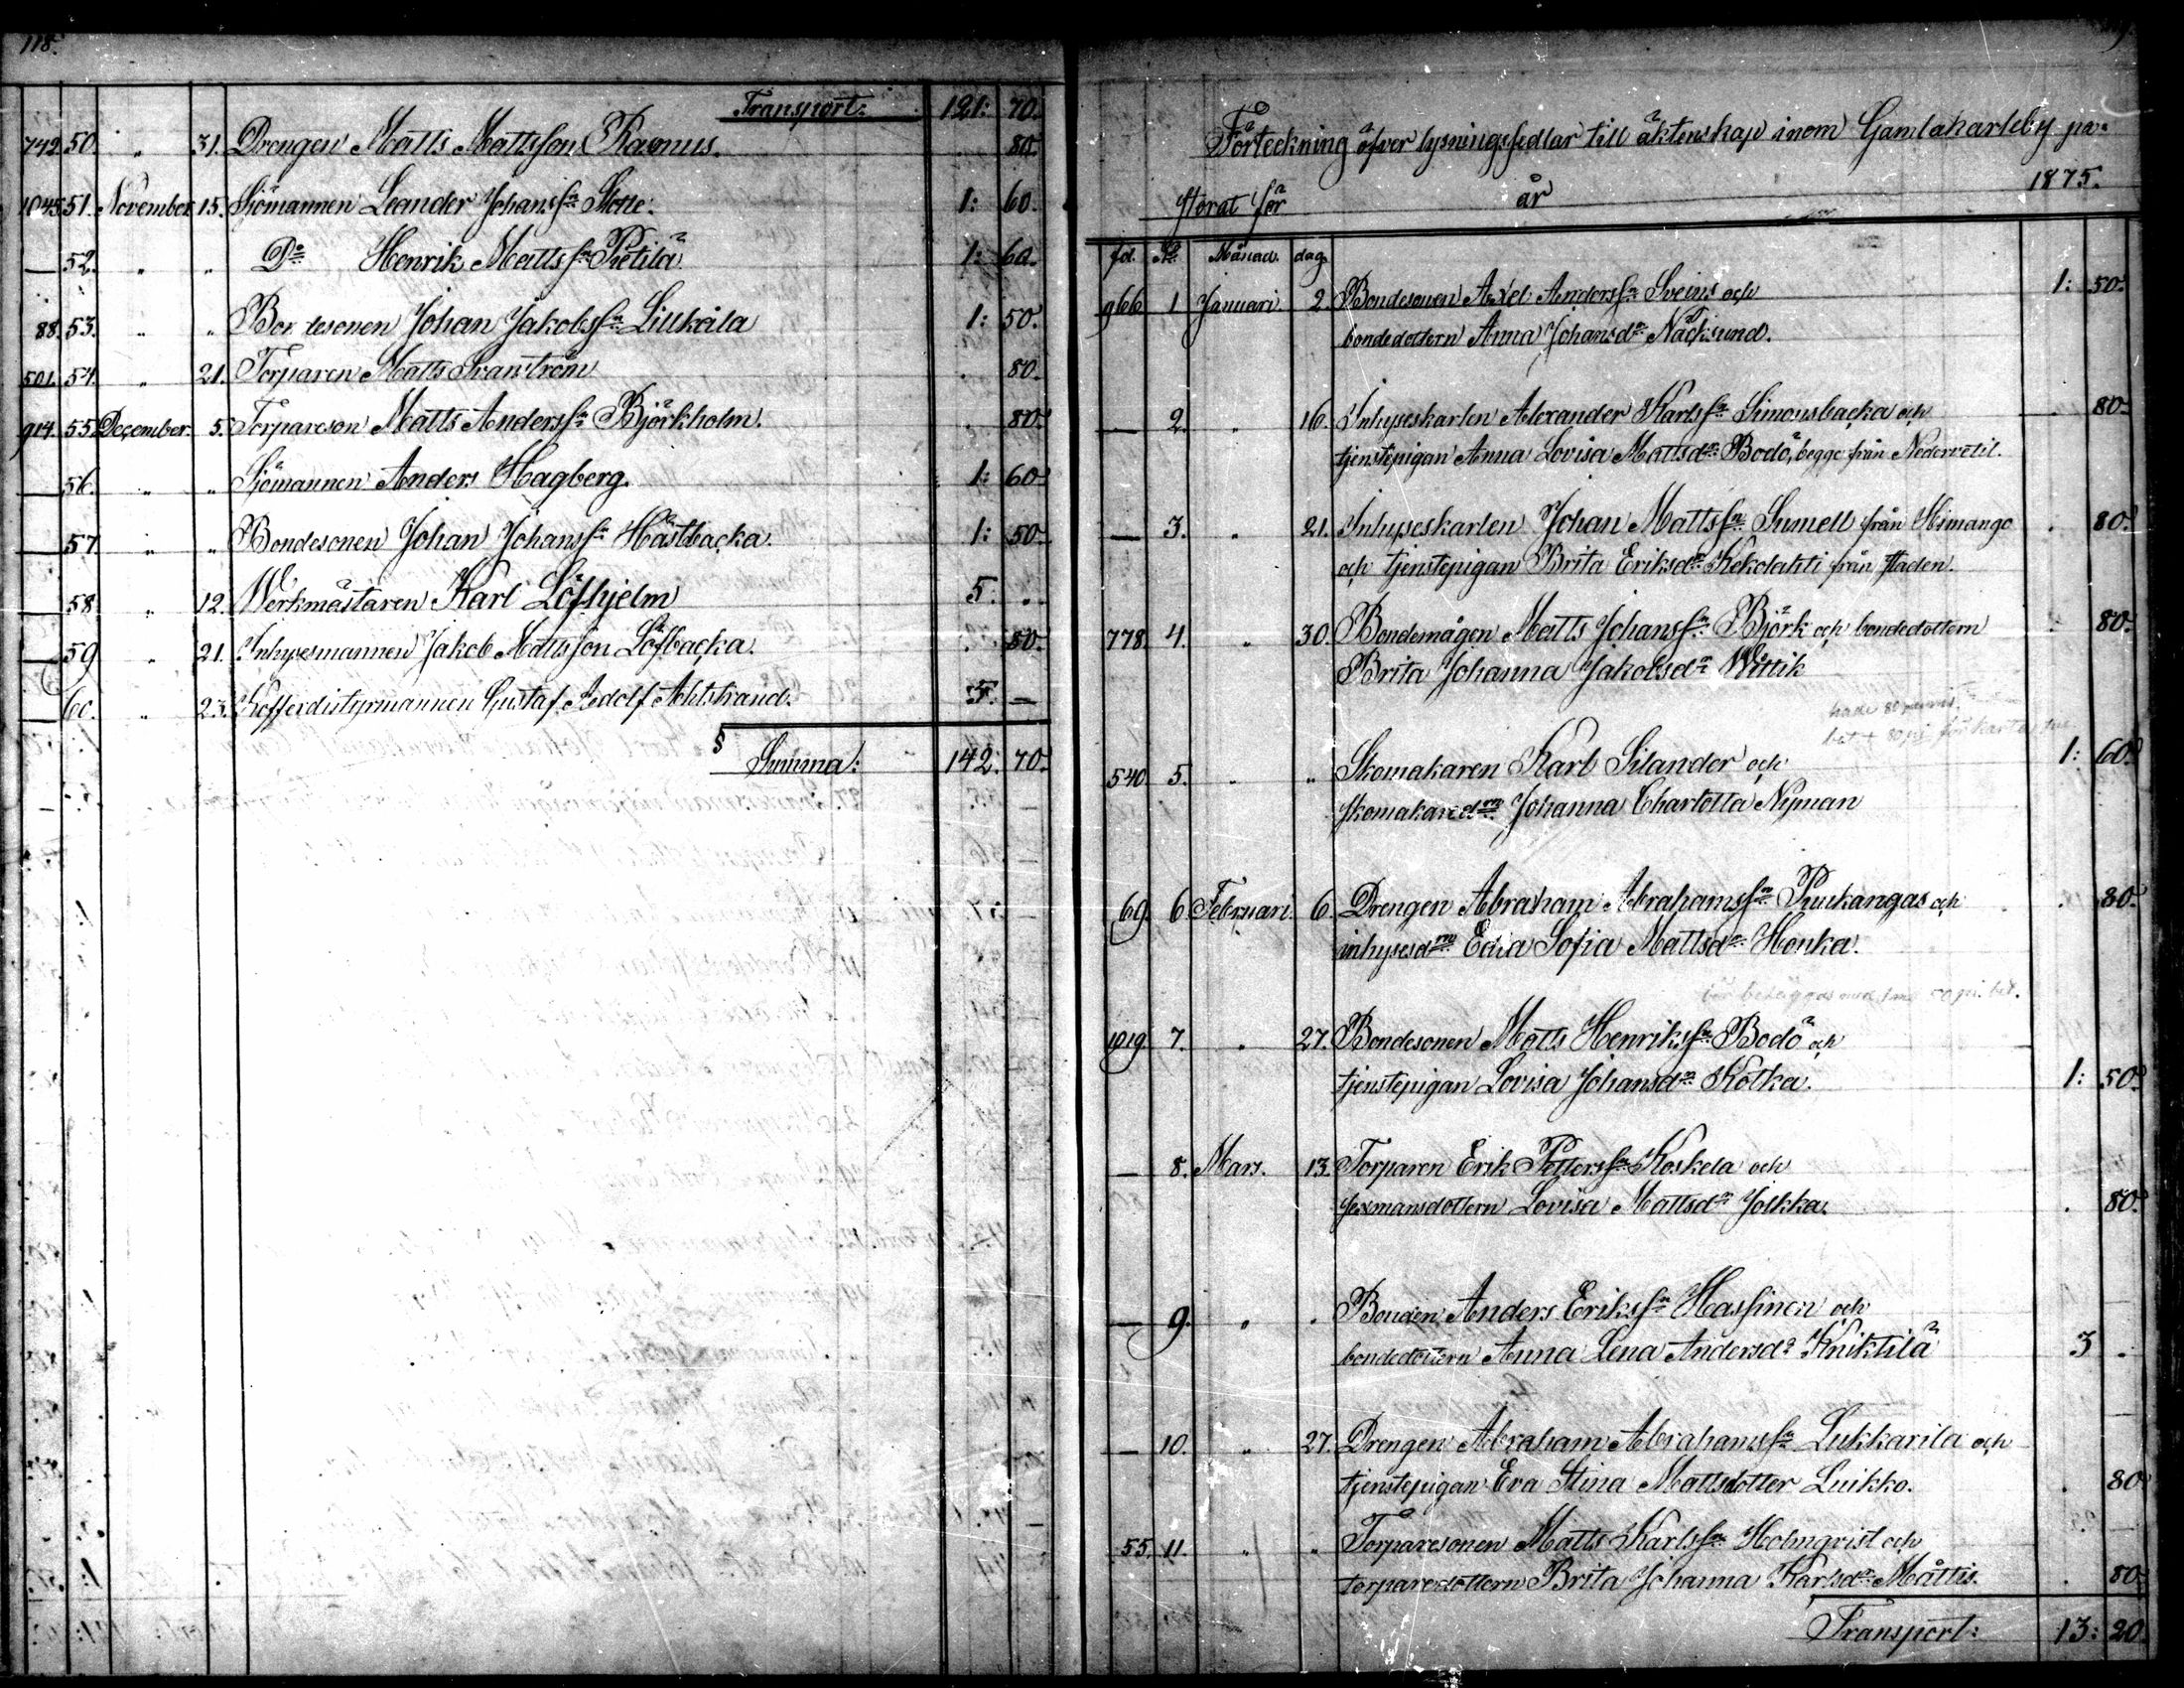 118.
Transport: 121: 70.
742. 50. " 31. Drengen Matts Mattsson Rasmus. 80
1045. 51. November 15. Sjömannen Leander Johanss:n Slotte. 1: 60.
— 52. " " D:o Henrik Mattss:n Pietilä 1: 60.
88. 53. " " Bondesonen Johan Jakobss:n Liukala 1: 50.
501. 54. " 21. Torparen Matts Svanström . 80.
914. 55. December. 5. Torpareson Matts Anderss:n Björkholm. . 80.
— 56. " " Sjömannen Anders Hagberg. 1: 60
— 57 " " Bondesonen Johan Johanss:n Hästbacka. 1: 50
— 58. " 12. Werkmästaren Karl Löfhjelm 5. .
— 59 " 21. Inhysesmannen Jakob Mattsson Löfbacka. . 80.
— 60. " 23. Kofferdistyrmannen Gustaf Adolf Ahlstrand. 5. —
§ Summa: 142: 70.
Förteckning öfver lysningssedlar till äktenskap inom Gamlakarleby pa-
storat för år 1875.
fol. No Månad. dag.
966 1 Januari. 2. Bondesonen Axel Anderss:n Sveins och 1: 50.
bondedottern Anna Johansd:r Näcksund.
— 2. " 16. Inhyseskarlen Alexander Karlss:n Simonsbacka och . 80
tjenstepigan Anna Lovisa Mattsd:r Bodö, begge från Nedervetil.
— 3. " 21. Inhyseskarlen Johan Mattss:n Sumell från Himango . 80
och tjenstepigan Brita Eriksd:r Kekolahti från staden.
778. 4. " 30. Bondemågen Matts Johanss:n Björk och bondedottern . 80.
Brita Johanna Jakobsd:r Wittik
hade 80 penni
bet + 80 pi för karta
540 5. " " Skomakaren Karl Silander och 1: 60.
skomakared:rn Johanna Charlotta Nyman
69. 6 Februari. 6. Drengen Abraham Abrahamss:n Puukangas och . 80.
inhysesd:rn Edla Sofia Mattsd:r Honka.
50 pi. bet.
1019. 7. " 27. Bondesonen Matts Henrikss:n Bodö och
tjenstepigan Lovisa Johansd:r Kotka. 1: 50.
— 8. Mars. 13. Torparen Erik Petterss:n Koskela och
sexmansdottern Lovisa Mattsd:r Jolkka. . 80.
— 9. " . Bonden Anders Erikss:n Hassinen och
bondedottern Anna Lena Andersd:r Kniktilä 3 .
— 10. " 27. Drengen Abraham Abrahamss:n Lukkarila och
tjenstepigan Eva Stina Mattsdotter Luikko. . 80
55. 11. " " Torparesonen Matts Karlss:n Holmqvist och
torparedottern Brita Johanna Karlsd:r Måttis. . 80
Transport: 13: 20.